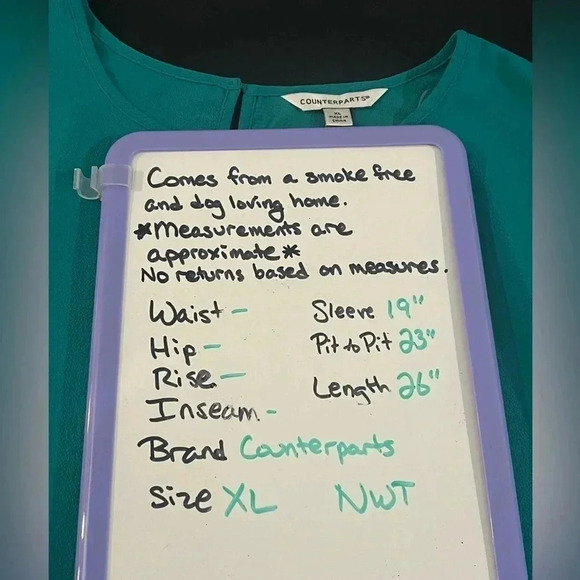 COUNTERPARTS®
XL
MADE IN
CHINA
Comes from a smoke free
and dog loving home.
*Measurements are
approximate*
No returns based on measures.
Waist - Sleeve 19"
Hip - Pit to Pit 23"
Rise -
Length 26"
Inseam -
Brand Counterparts
Size XL NWT